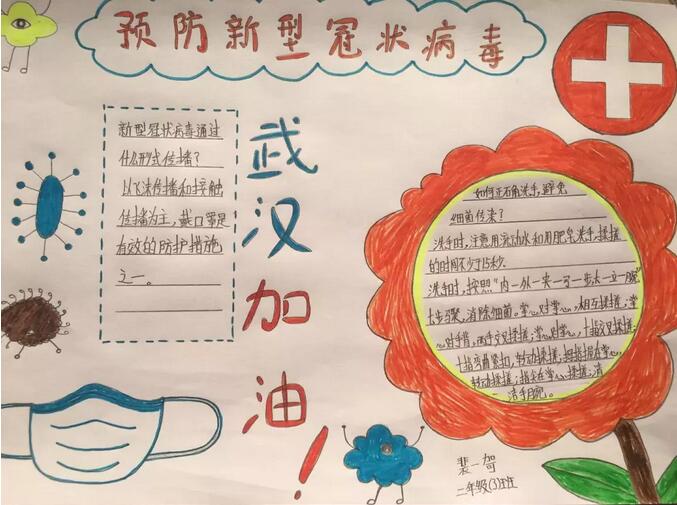 预防新型冠状病毒
新型冠状病毒通过
什么形式传播?
以飞沫传播和接触
传播为主,戴口罩是
有效的防护措施
之一。
武汉加油!
如何正确洗手,避免
细菌传染?
洗手时,注意用流动水和用肥皂洗手,揉搓
的时间不少于15秒.
洗手时,按照"内一外一夹一弓一步大一立一腕"
七步骤,消除细菌。掌心对掌心,相互揉搓;掌
心对手背,两手交叉揉搓;掌心对掌心,十指交叉揉搓;
十指弯曲紧扣,转动揉搓;拇指握在掌心,
转动揉搓;指尖在掌心揉搓;清
洁手腕。
裴一
二年级(3)班